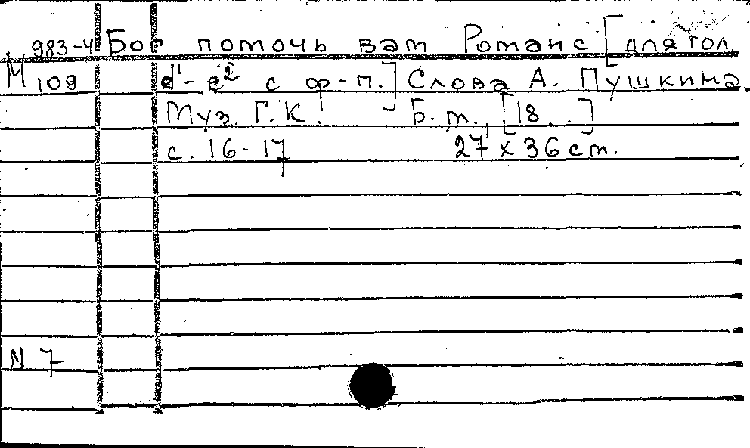 М 983-4 Бог помочь вам Романс [для гол.
109 d¹-e² с ф-п.] Слова А. Пушкина.
Муз. Г.К. Б.м., [18..]
с. 16-17 27 х 36 см.
N 7